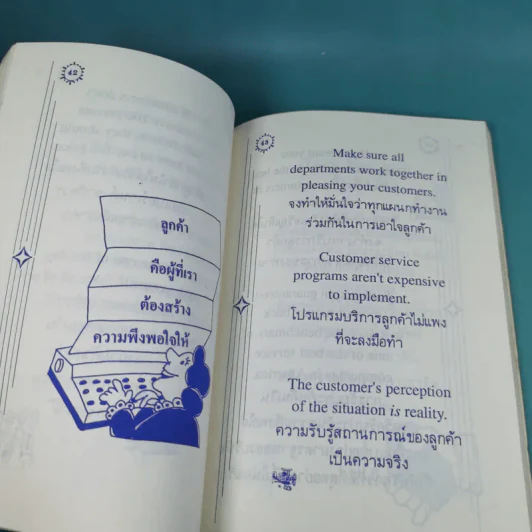 42
ลูกค้า
คือผู้ที่เรา
ต้องสร้าง
ความพึงพอใจให้
43
Make sure all
departments work together in
pleasing your customers.
จงทำให้มั่นใจว่าทุกแผนกทำงาน
ร่วมกันในการเอาใจลูกค้า
Customer service
programs aren't expensive
to implement.
โปรแกรมบริการลูกค้าไม่แพง
ที่จะลงมือทำ
The customer's perception
of the situation is reality.
ความรับรู้สถานการณ์ของลูกค้า
เป็นความจริง